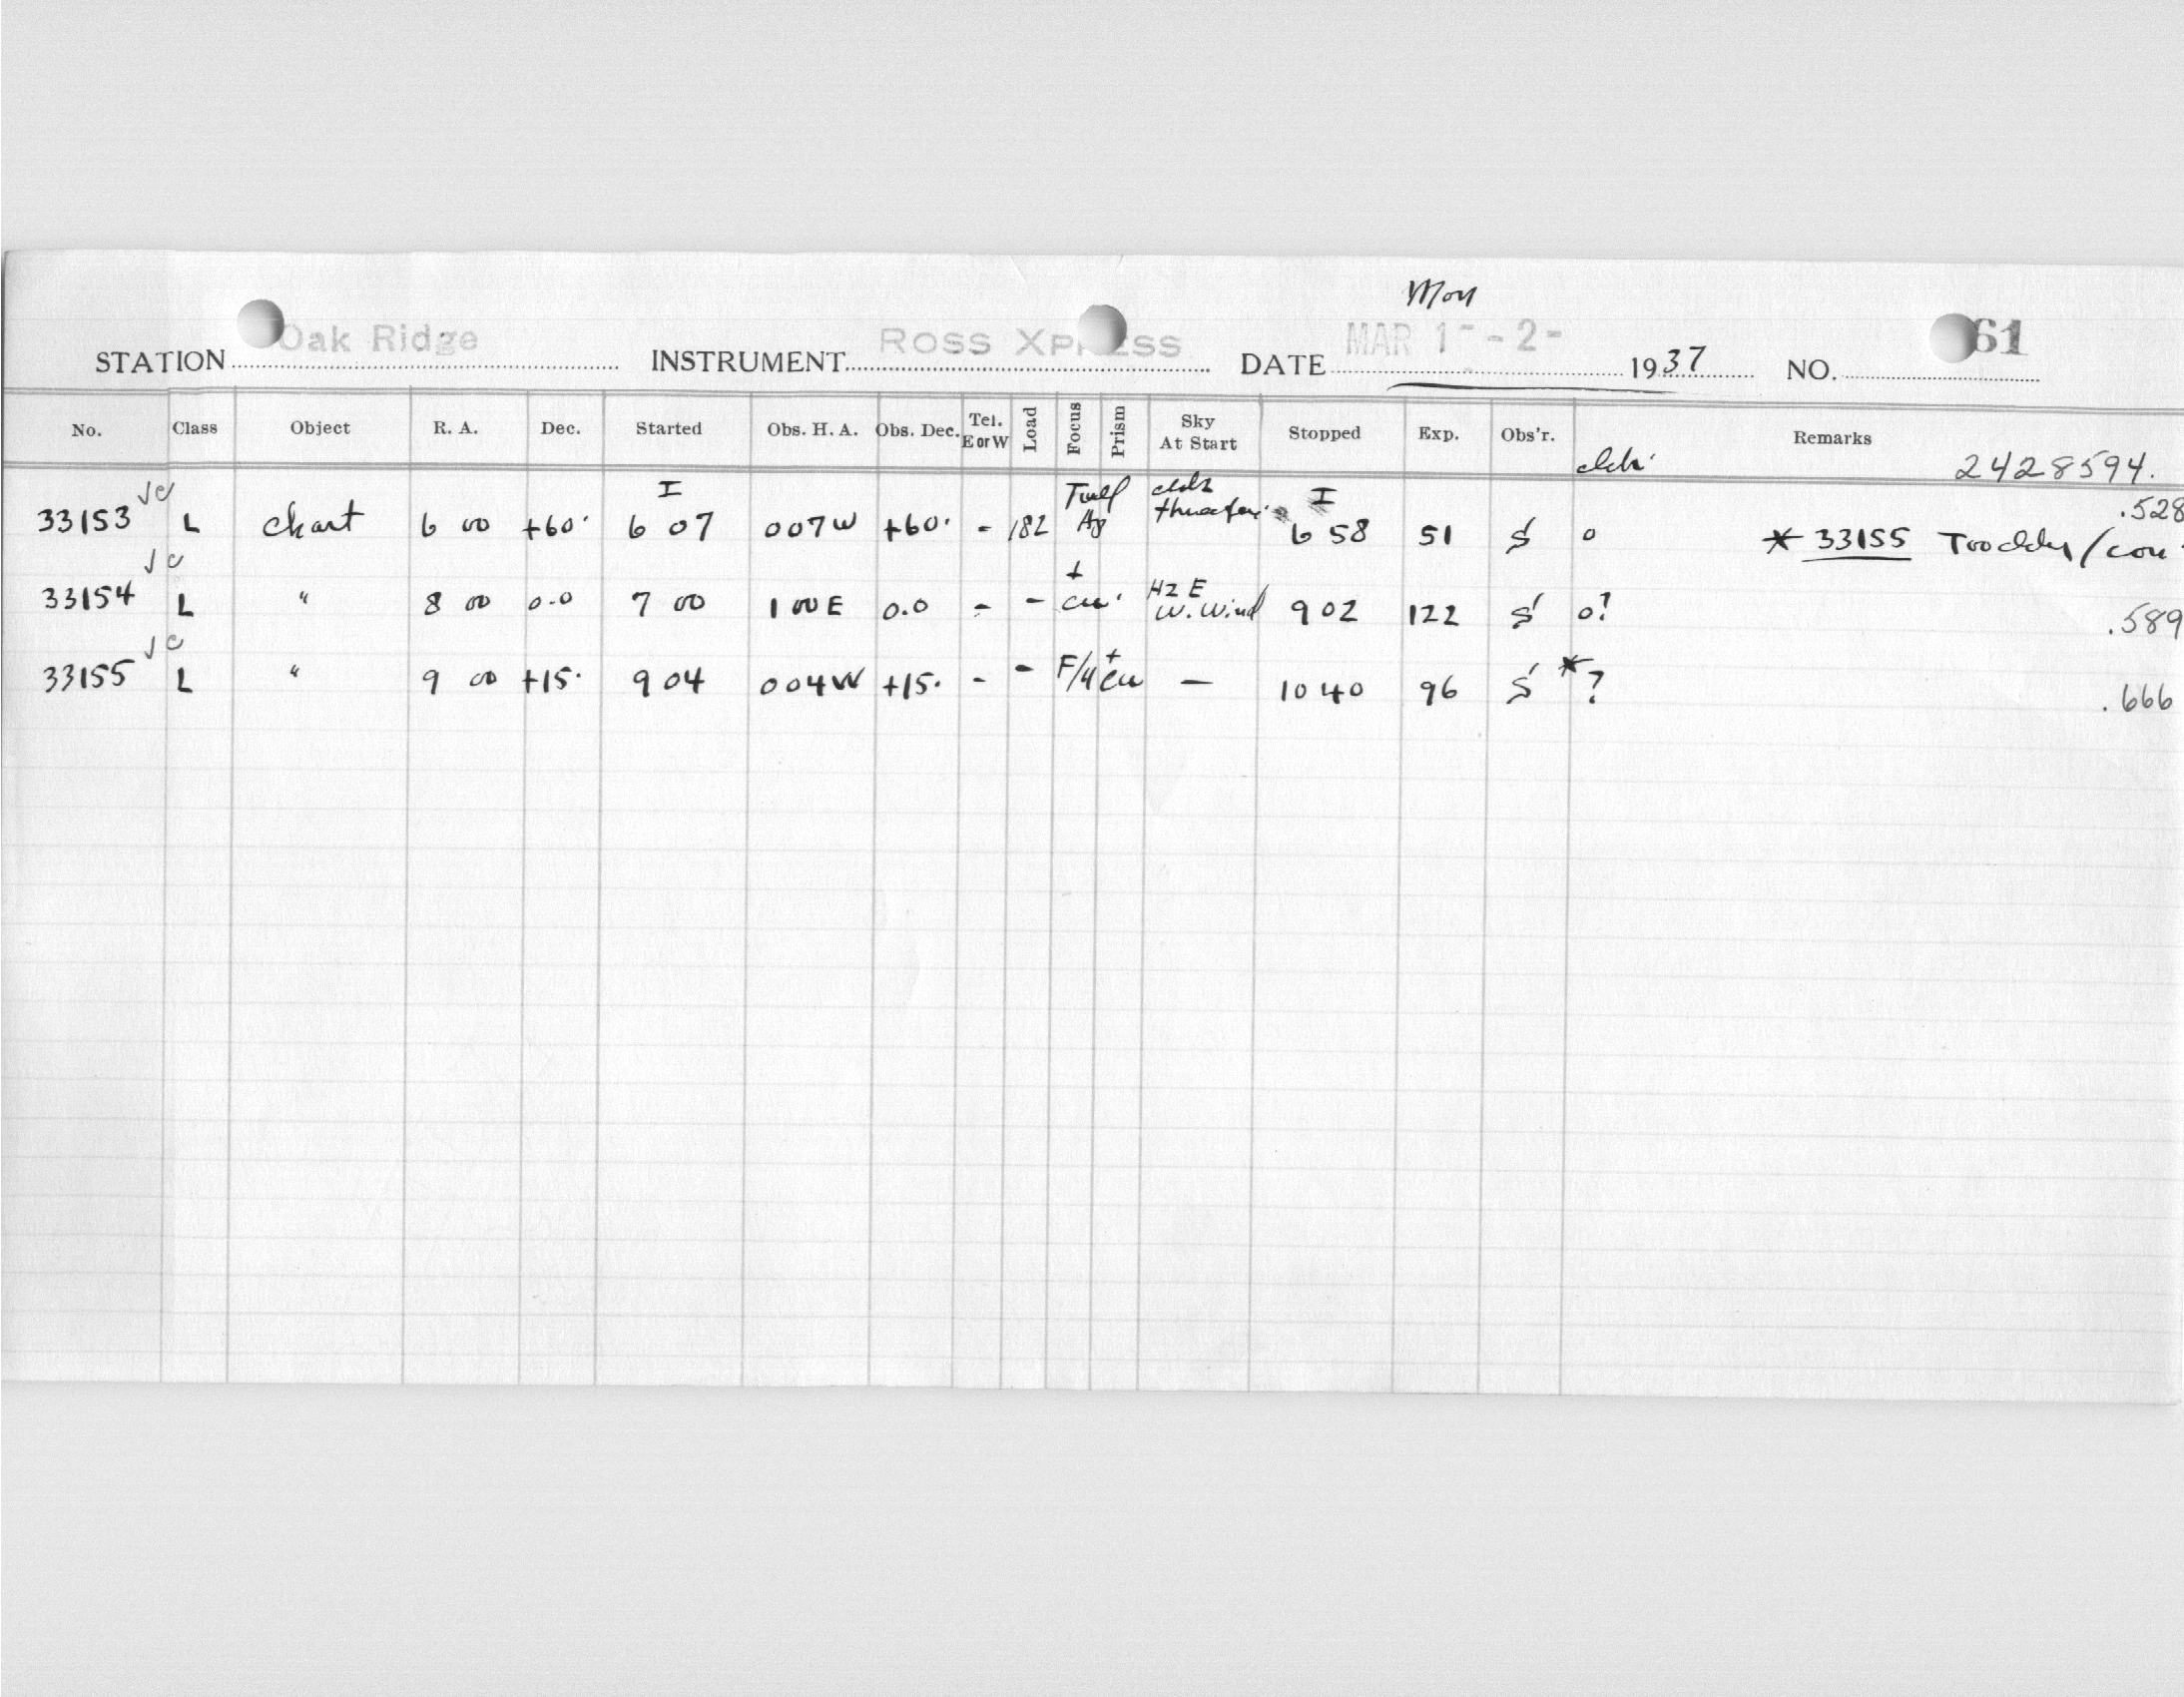 Mon
STATION Oak Ridge INSTRUMENT Ross Xpress DATE MAR 1 - 2 - 1937 NO. 61
No. Class Object R. A. Dec. Started Obs. H. A. Obs. Dec. Tel. E or W Load Focus Prism Sky At Start Stopped Exp. Obs'r. Remarks
2428594.
33153 L chart 6 00 +60° I 6 07 007W +60° - 182 I 6 58 51 S o * 33155 .528
33154 L " 8 00 0.0 7 00 1 00 E 0.0 - - HZ E W. Wind 9 02 122 S o? .589
33155 L " 9 00 +15° 9 04 004W +15° - - F/4 — 10 40 96 S * ? .666